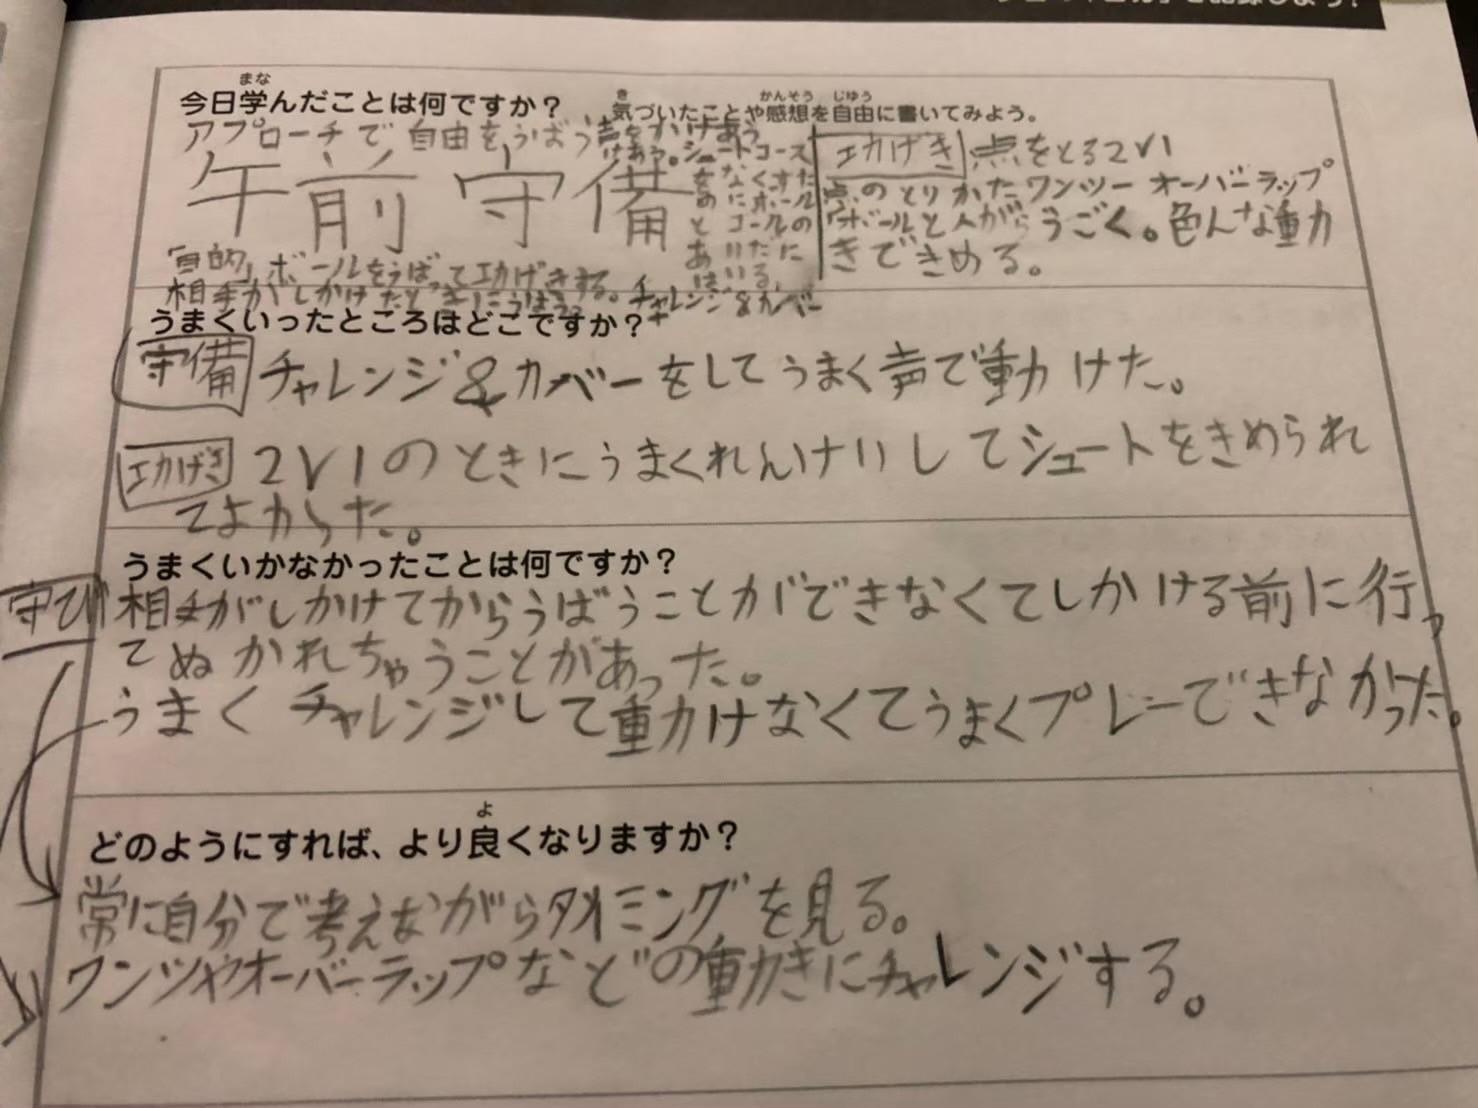 今日学んだことは何ですか?
まな
気づいたことや感想を自由に書いてみよう。
き かんそう じゆう
アプローチで自由をうばう声をかけあう
けあう。シュートコース
をなくすた
めにボール
とゴールの
あいだに
はいる。
午前守備
「目的」ボールをうばって攻げきする。
相手がしかけたときにうばう。チャレンジ&カバー
攻げき 点をとる2V1
点のとりかたワンツーオーバーラップ
ボールと人がうごく。色んな動
きできめる。
うまくいったところはどこですか?
守備 チャレンジ&カバーをしてうまく声で動けた。
攻げき 2V1のときにうまくれんけいしてシュートをきめられ
てよかった。
うまくいかなかったことは何ですか?
守び 相手がしかけてからうばうことができなくてしかける前に行っ
てぬかれちゃうことがあった。
うまくチャレンジして動けなくてうまくプレーできなかった。
どのようにすれば、より良くなりますか?
よ
常に自分で考えながらタイミングを見る。
ワンツやオーバーラップなどの動きにチャレンジする。